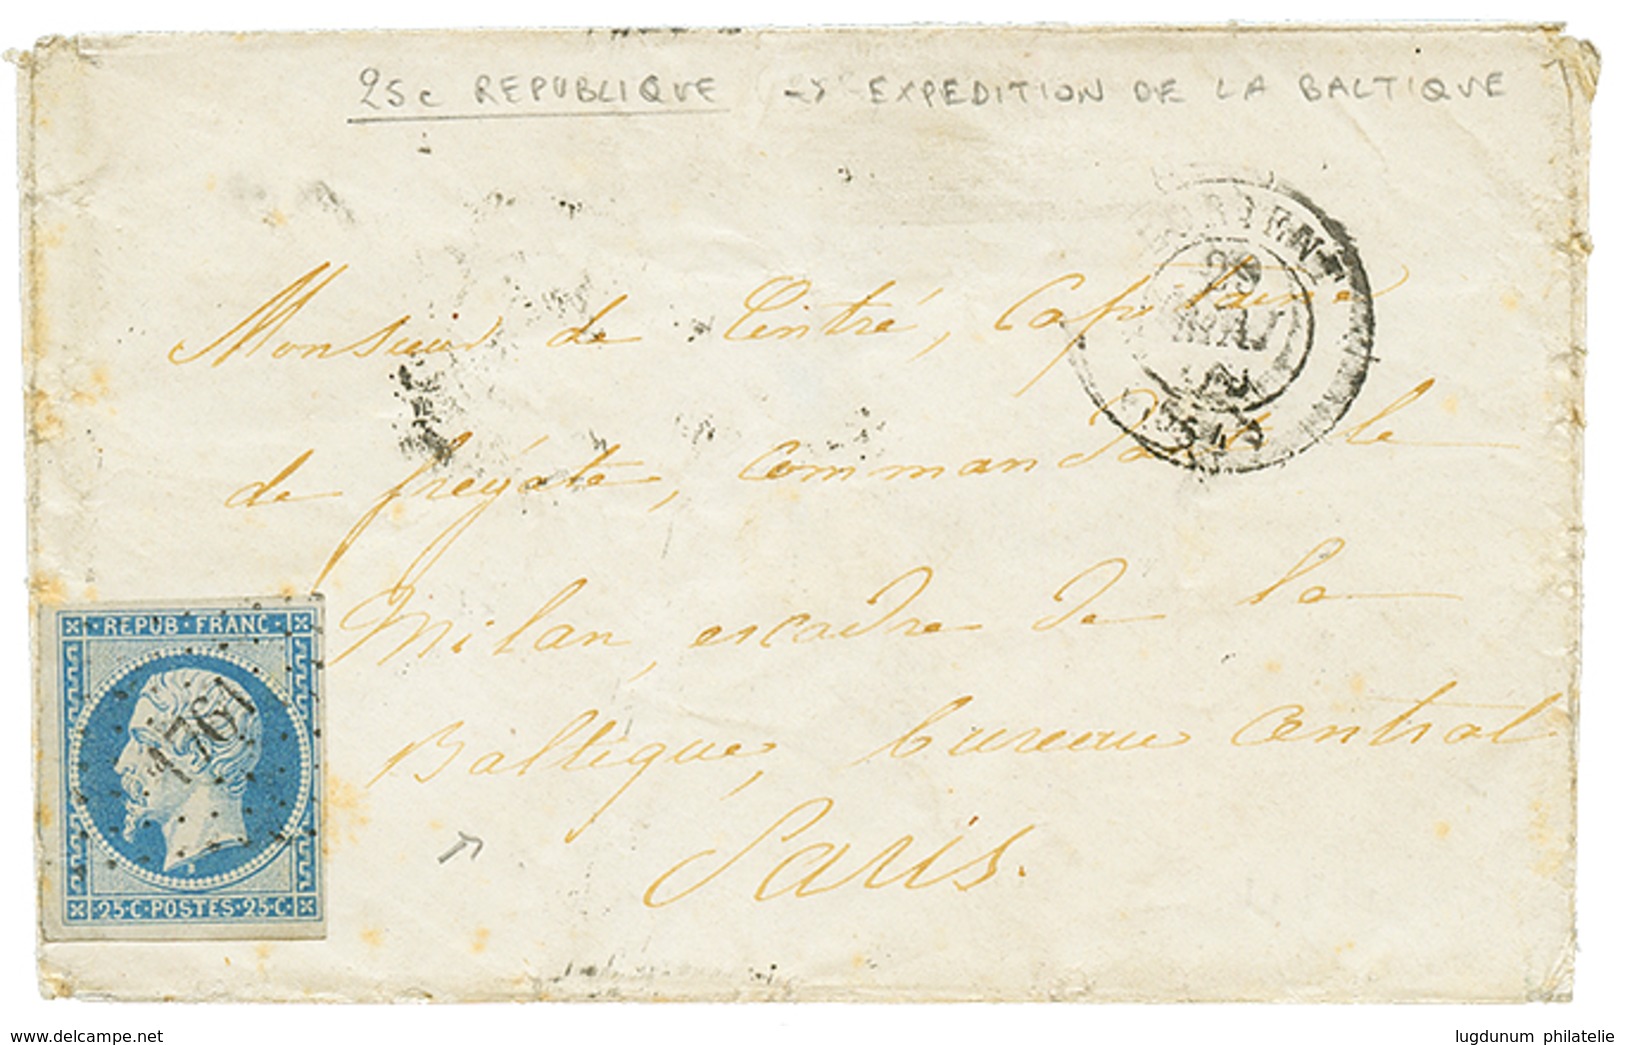 25c REPUBLIQUE -> EXPEDITION DE LA BALTIQUE
LORIENT
29
MAI
54
Monsieur de Cintré, Capitaine
de frégate, commandant le
Milan, escadre de la
Baltique, bureau central
Paris.
REPUB FRANC
1761
25 C POSTES 25 C
delcampe.net
lugdunum philatelie